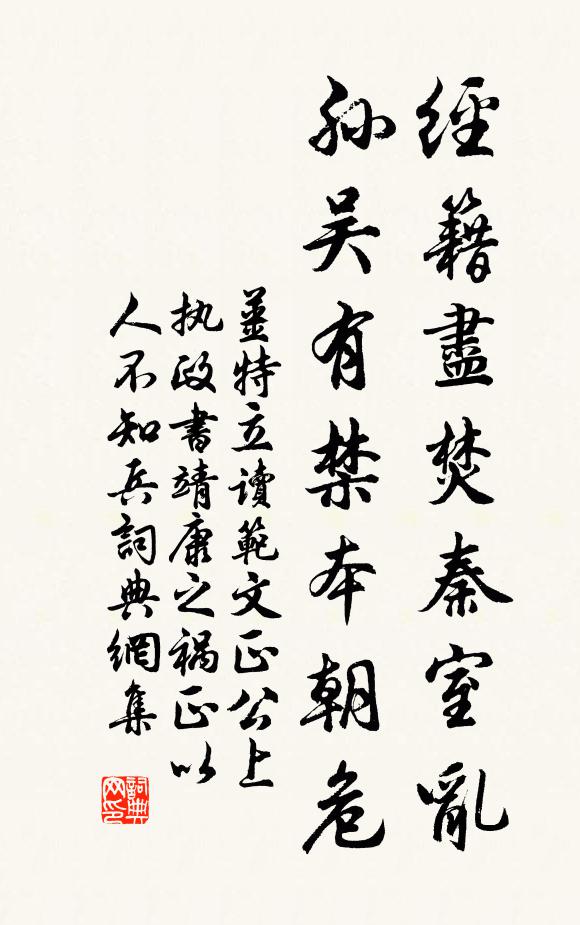 經籍盡焚秦室亂
孙吴有禁本朝危
姜特立讀範文正公上
执政書靖康之禍正以
人不知兵詞典網集
詞典網印